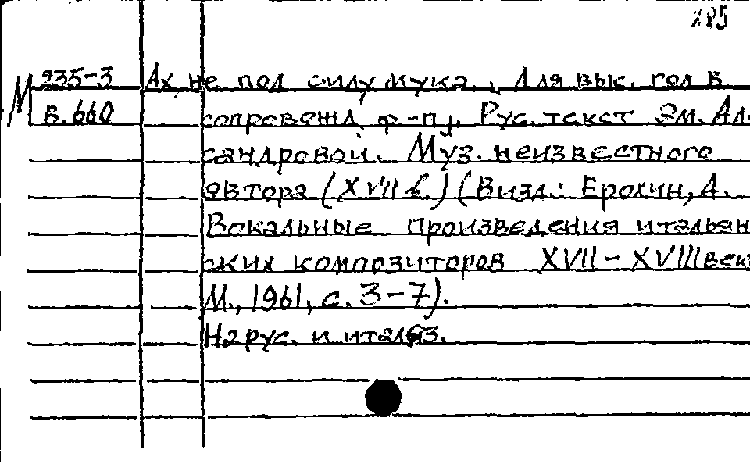 285
М 235-3 Ах, не под силу мука... Для выс. гол. в
в. 660 сопровожд. ф-п. Рус. текст Эм. Ал.
сандровой. Муз. неизвестного
автора (XVII в.) (В изд.: Ерохин, А.
Вокальные произведения итальян
ских композиторов XVII-XVIII век
М., 1961, с. 3-7).
На рус. и итал. яз.